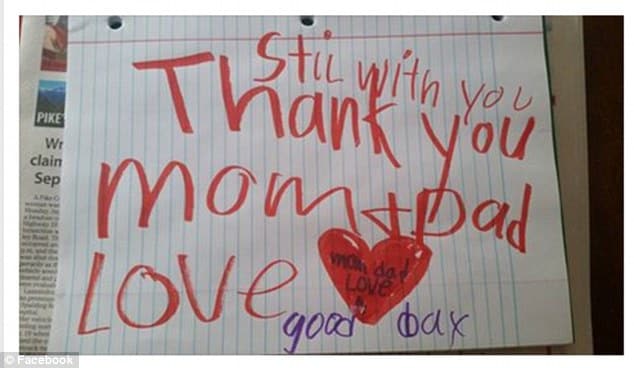 Stil with you
Thank you
mom + Dad
LOVE
mom dad
LOVE
good bax
PIKE
Wr
clain
Sep
© Facebook